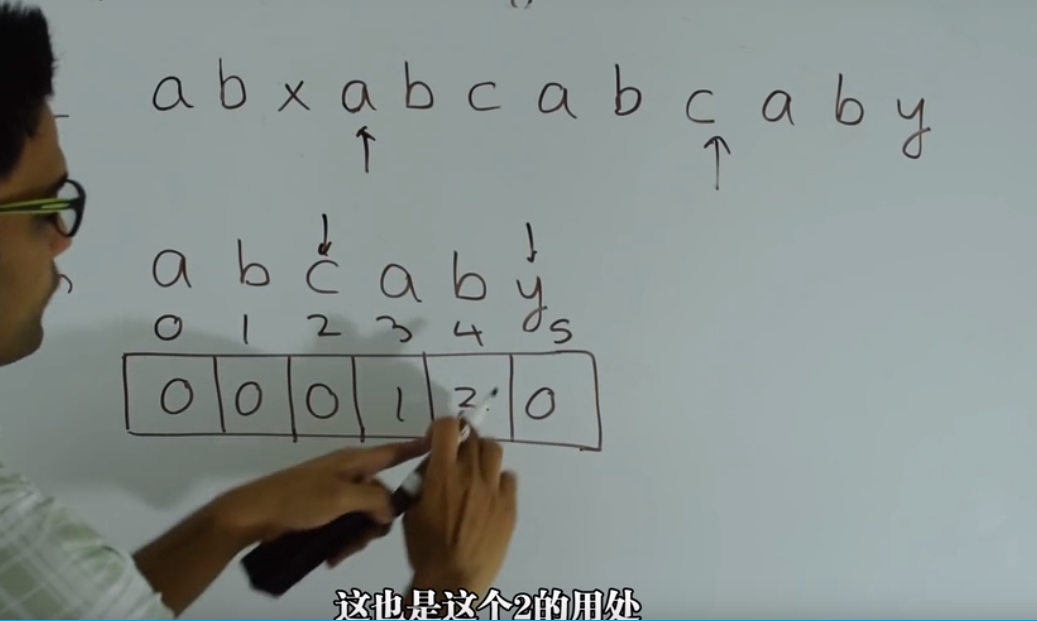 a b x a b c a b c a b y
a b c a b y
0 1 2 3 4 5
0 0 0 1 2 0
这也是这个2的用处